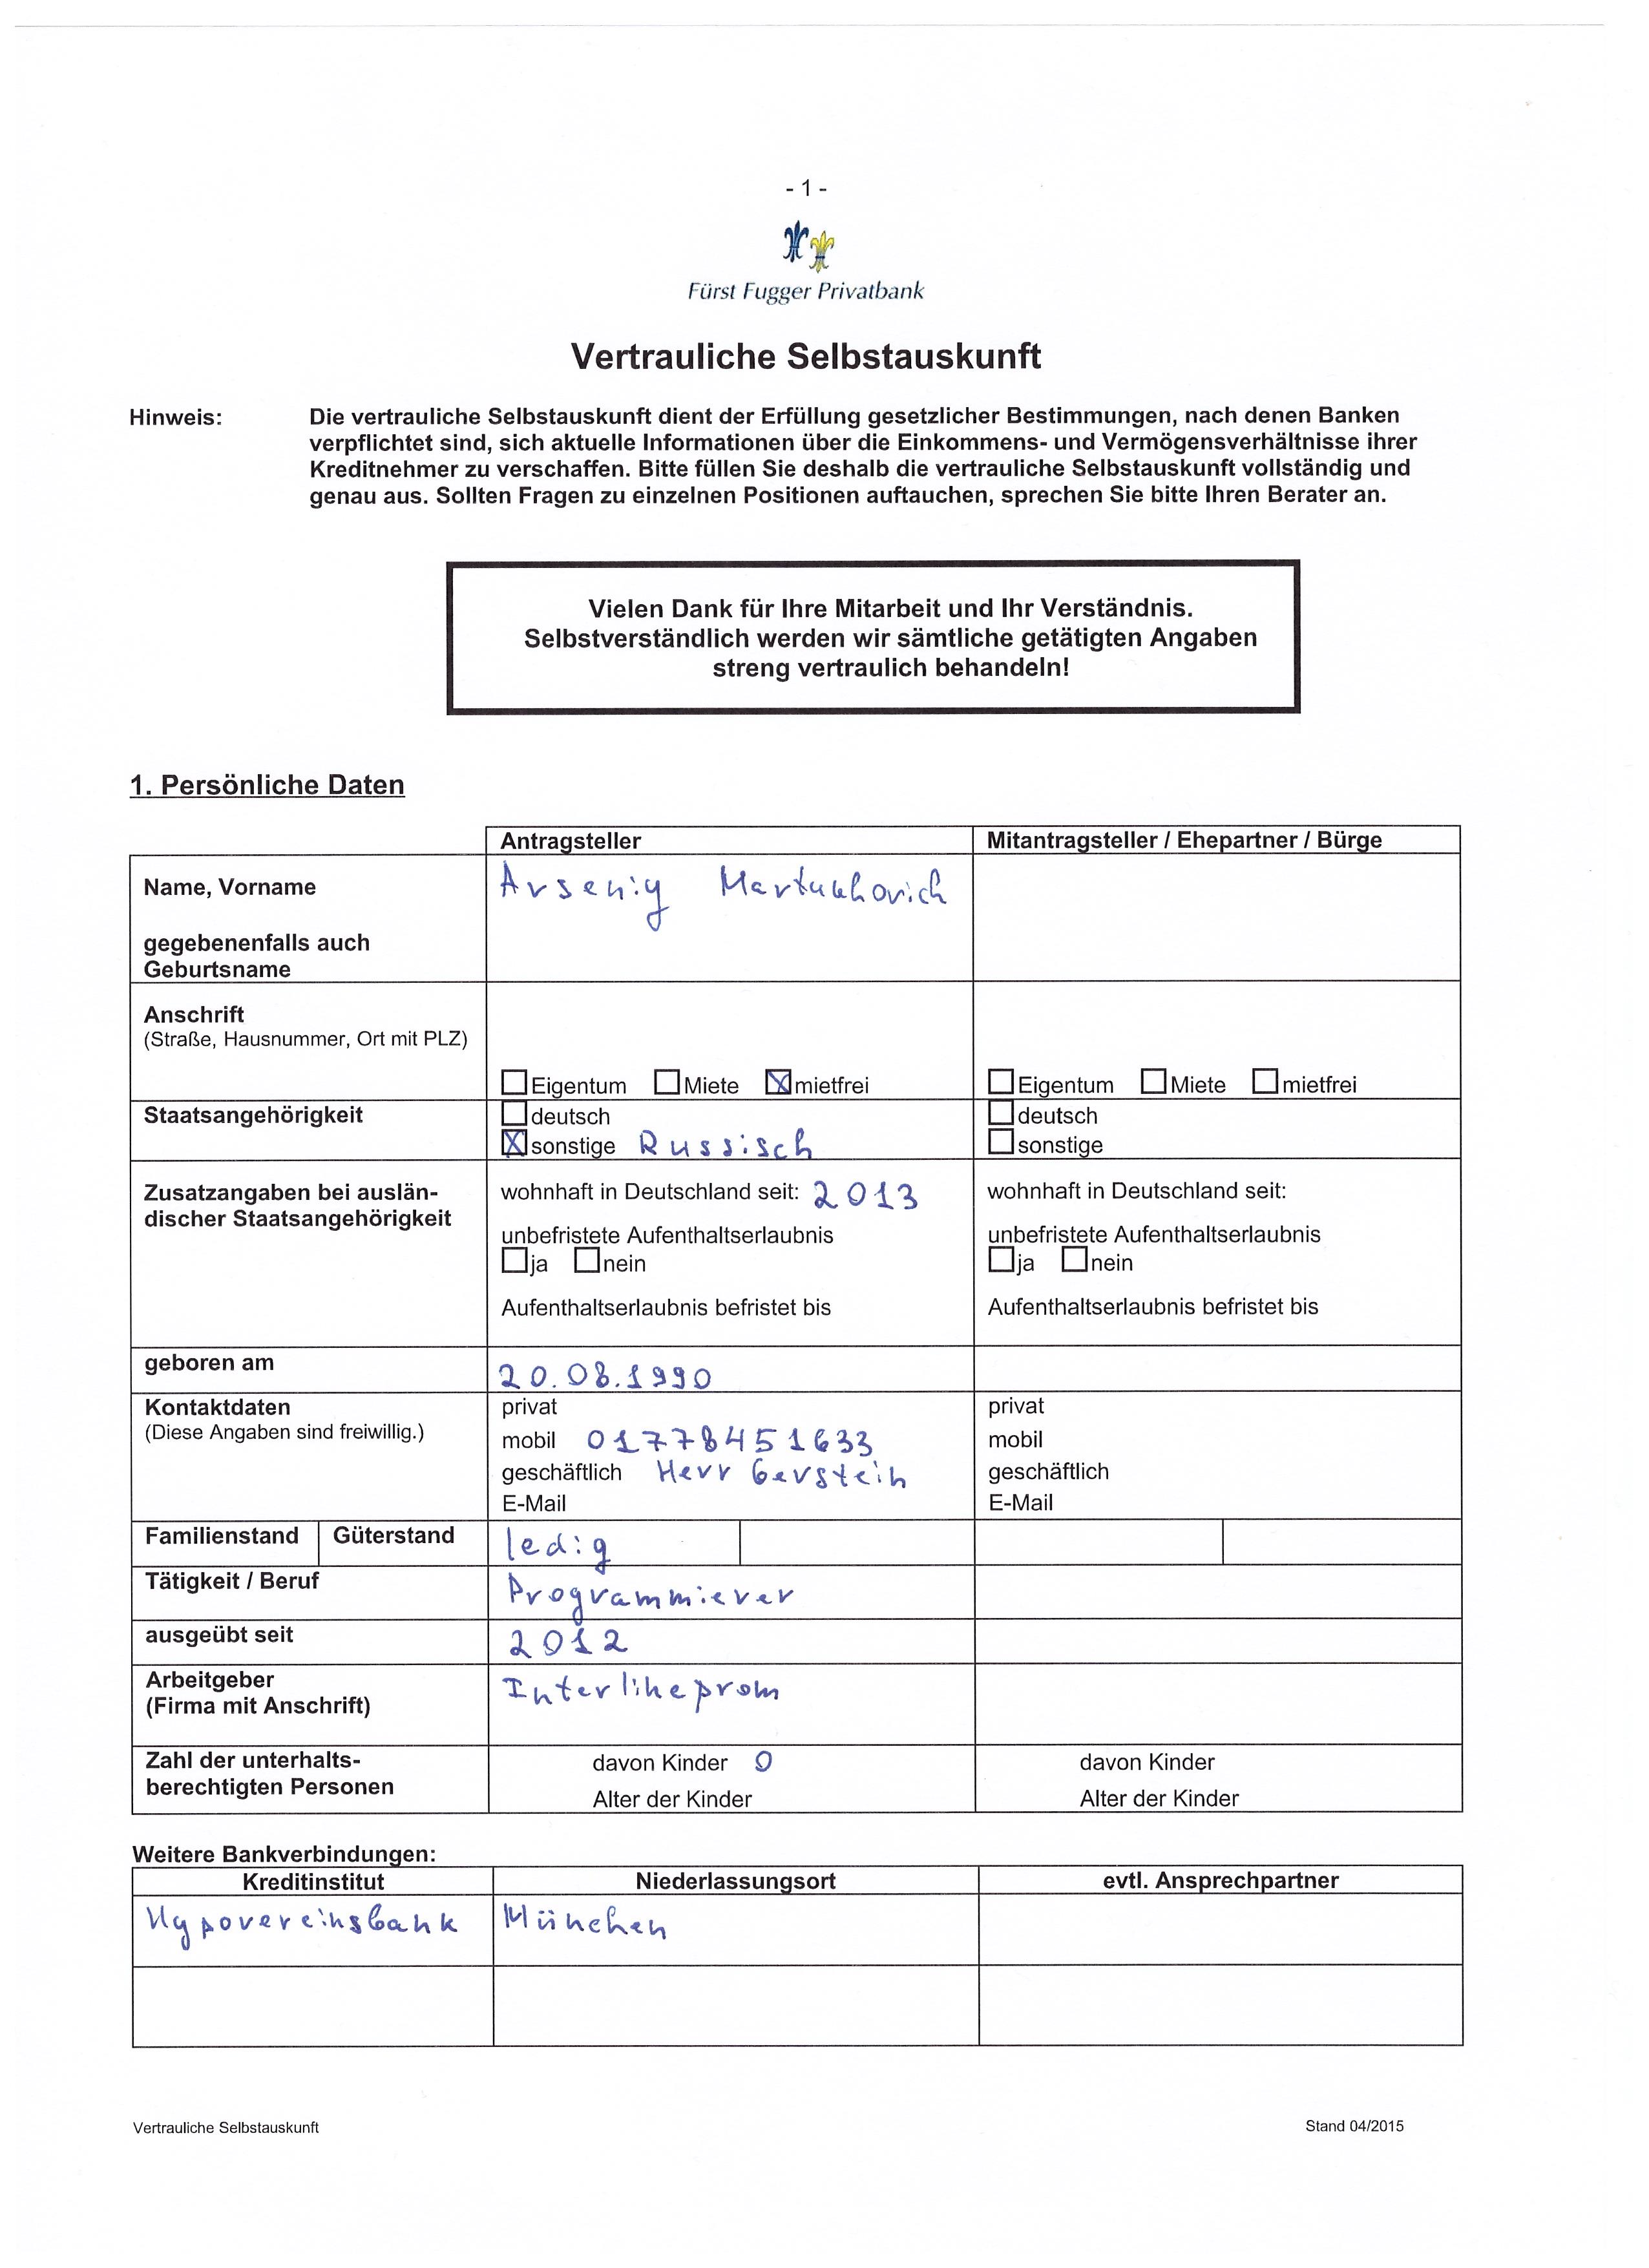 - 1 -
Fürst Fugger Privatbank
Vertrauliche Selbstauskunft
Hinweis: Die vertrauliche Selbstauskunft dient der Erfüllung gesetzlicher Bestimmungen, nach denen Banken
verpflichtet sind, sich aktuelle Informationen über die Einkommens- und Vermögensverhältnisse ihrer
Kreditnehmer zu verschaffen. Bitte füllen Sie deshalb die vertrauliche Selbstauskunft vollständig und
genau aus. Sollten Fragen zu einzelnen Positionen auftauchen, sprechen Sie bitte Ihren Berater an.
Vielen Dank für Ihre Mitarbeit und Ihr Verständnis.
Selbstverständlich werden wir sämtliche getätigten Angaben
streng vertraulich behandeln!
1. Persönliche Daten
Antragsteller Mitantragsteller / Ehepartner / Bürge
Name, Vorname Arseniy
gegebenenfalls auch
Geburtsname
Anschrift
(Straße, Hausnummer, Ort mit PLZ)
Eigentum Miete mietfrei Eigentum Miete mietfrei
Staatsangehörigkeit deutsch deutsch
sonstige Russisch sonstige
Zusatzangaben bei auslän- wohnhaft in Deutschland seit: 2013 wohnhaft in Deutschland seit:
discher Staatsangehörigkeit
unbefristete Aufenthaltserlaubnis unbefristete Aufenthaltserlaubnis
ja nein ja nein
Aufenthaltserlaubnis befristet bis Aufenthaltserlaubnis befristet bis
geboren am 20.08.1990
Kontaktdaten privat privat
(Diese Angaben sind freiwillig.)
mobil 01778451633 mobil
geschäftlich Herr Gerstein geschäftlich
E-Mail E-Mail
Familienstand Güterstand ledig
Tätigkeit / Beruf Programmierer
ausgeübt seit 2012
Arbeitgeber Interlineprom
(Firma mit Anschrift)
Zahl der unterhalts- davon Kinder 0 davon Kinder
berechtigten Personen
Alter der Kinder Alter der Kinder
Weitere Bankverbindungen:
Kreditinstitut Niederlassungsort evtl. Ansprechpartner
Hypovereinsbank München
Vertrauliche Selbstauskunft Stand 04/2015